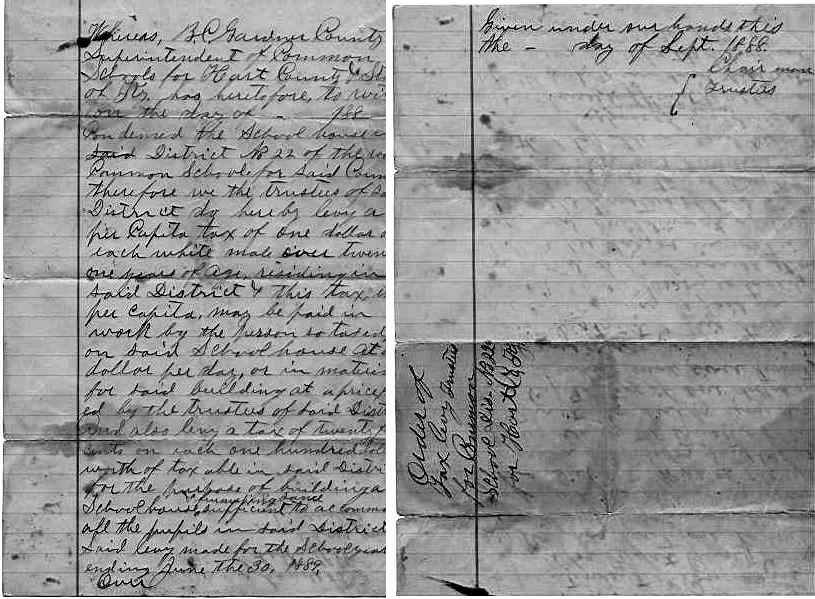 Whereas, B.C. Gardner County
Superintendent of Common
Schools for Hart County & St
of Ky. has heretofore, to wit
on the day of - 188
Condemed the School house
said District No 22 of the
Common Schools for said Coun
therefore we the trustees of
District do hereby levy a
per Capita tax of one dollar
each white male over twen
one years of age, residing in
said District & this tax,
per capita, may be paid in
work by the person so taxed
on said School house at
dollar per day, or in materi
for said building at a price
ed by the trustees of said Distr
and also levy a tax of twenty
cents on each one hundred
worth of tax able in said Distri
for the purpose of building a
School house, sufficient to accommo
all the pupils in said District
Said levy made for the School year
ending June the 30, 1889.
Over
Given under our hands this
the - day of Sept. 1888
Chairman
Trustees
Order of
Tax levy Trustees
for Common
School Dis. No 22
of Hart Co Ky